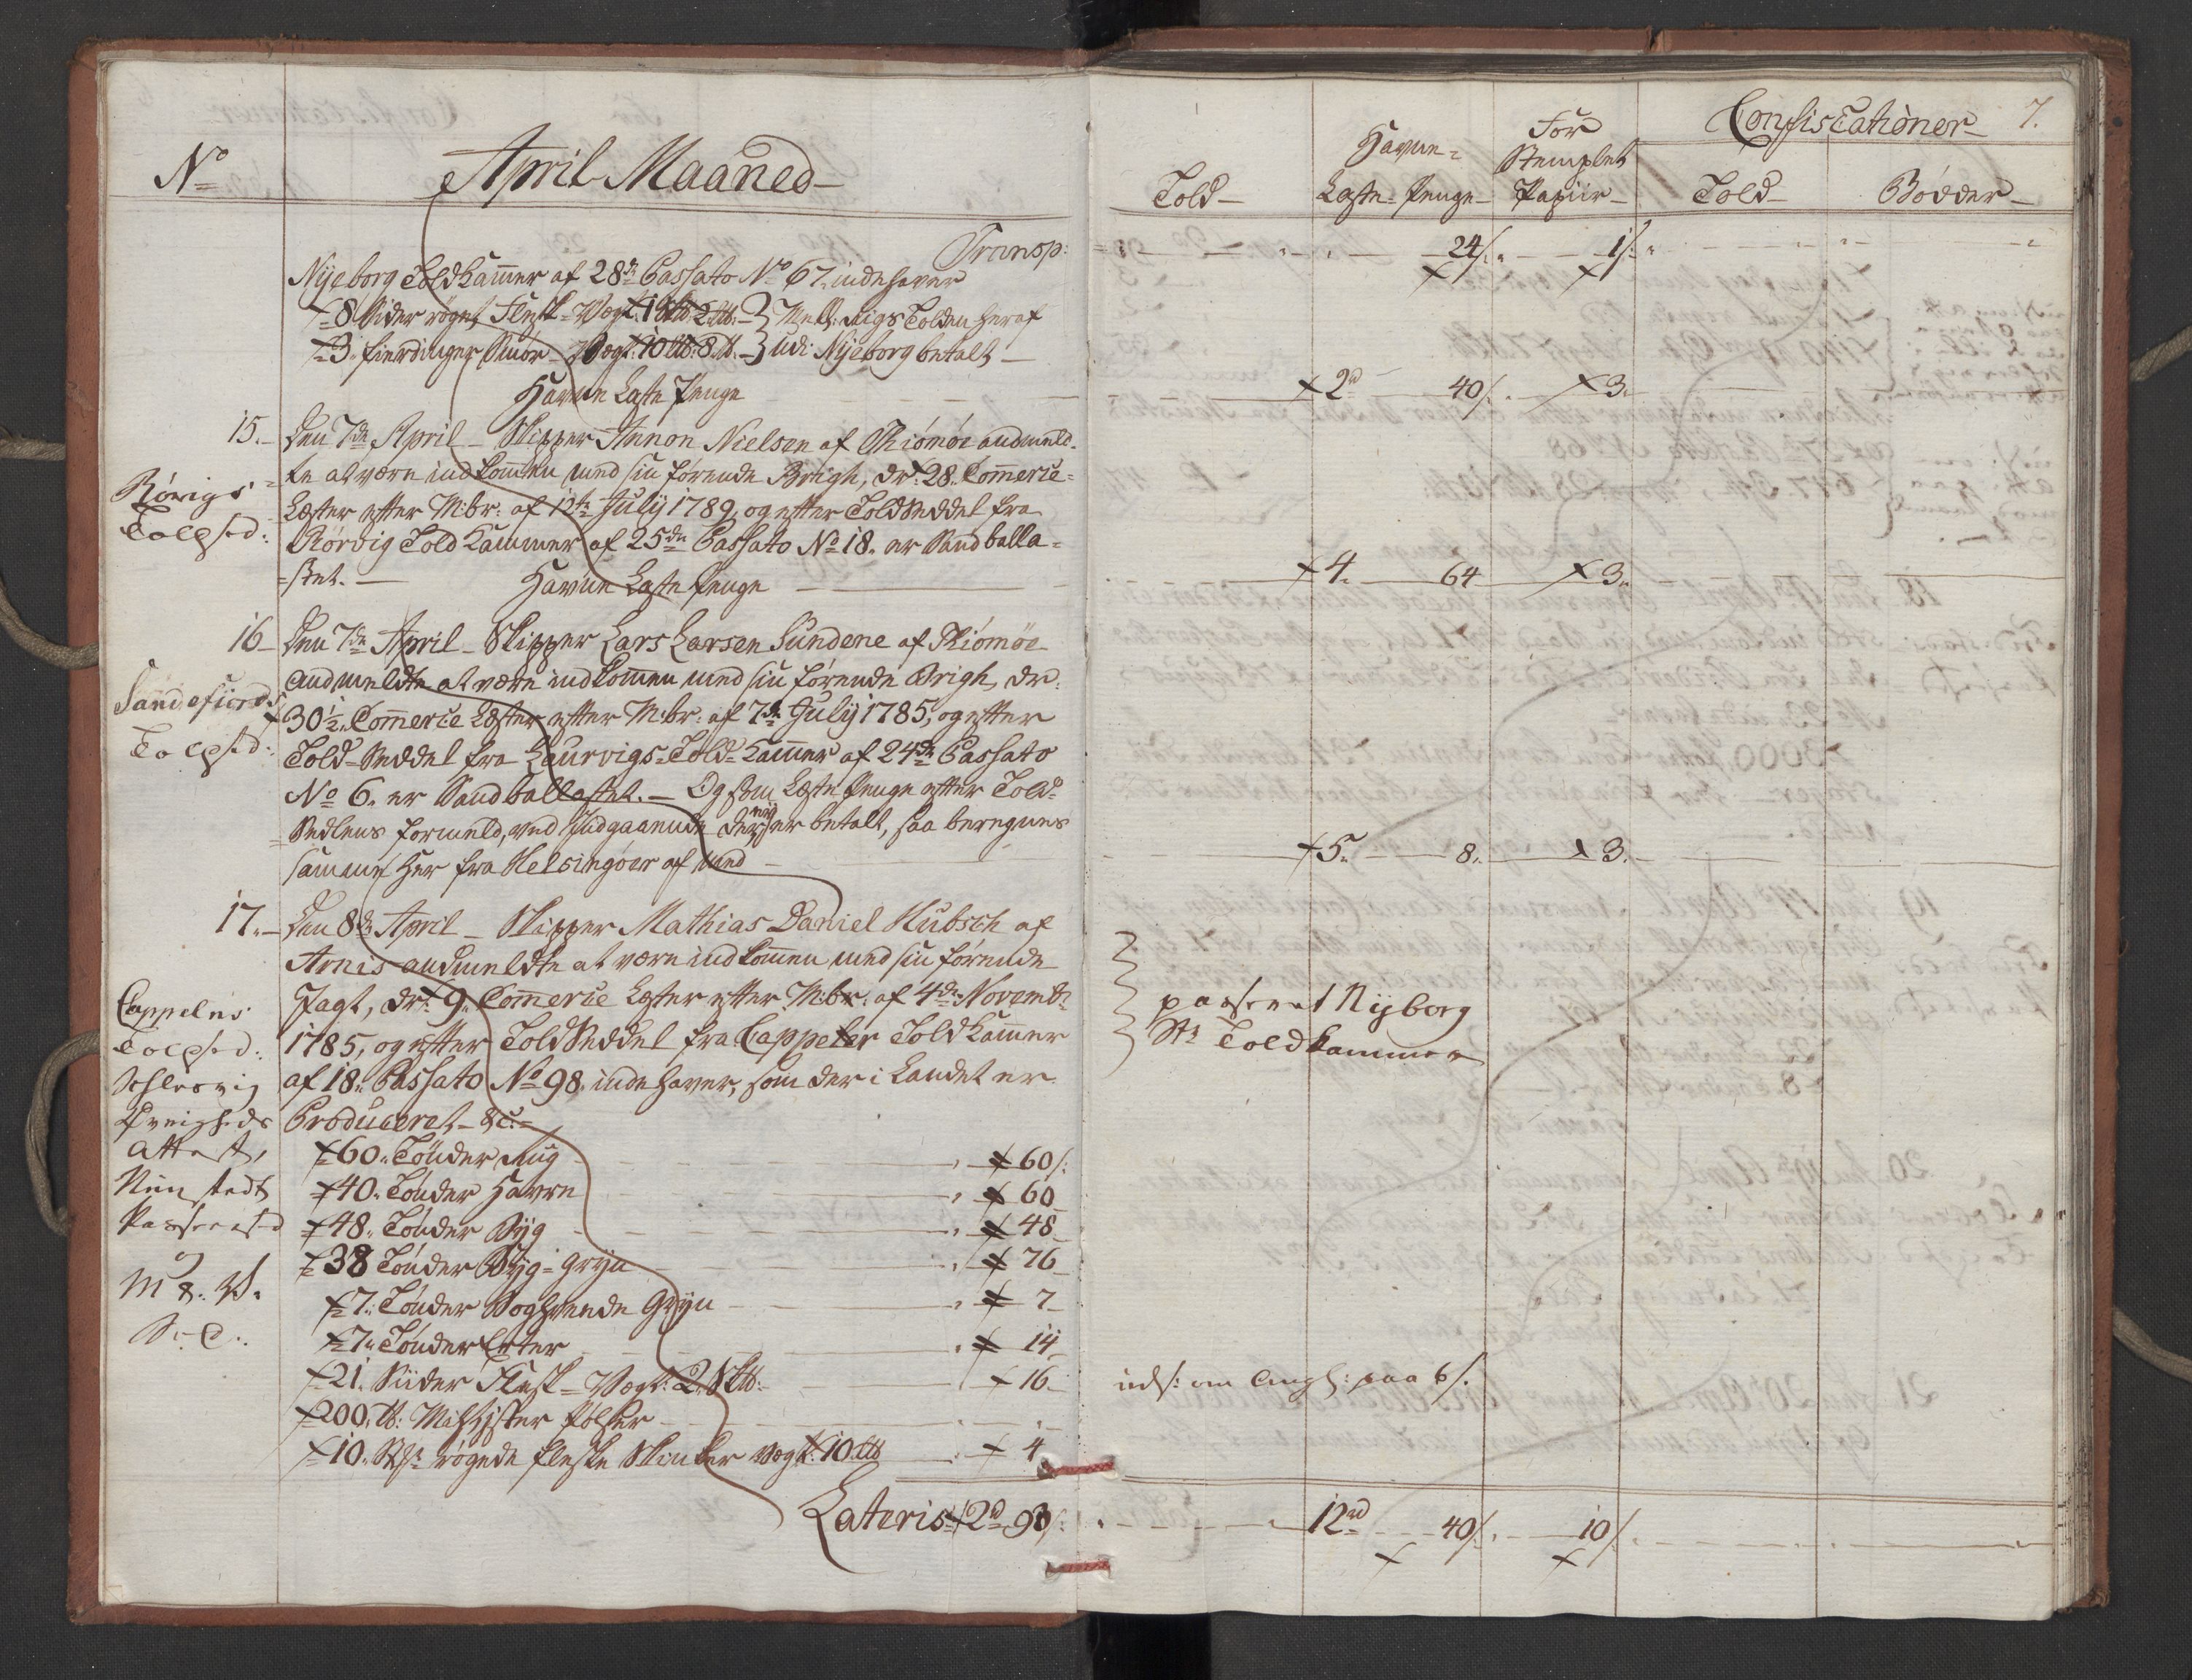 No
April Maaned
Transp:
Nÿeborg Told Kammer af 28de Passato No 67. indehaver
8 Sider röget Flesk - Vægt: 1 2 Mell: Rigs Tolden heraf
3. fierdinger Smör - Vægt: 10 8 udi Nÿeborg betalt
Havne Læste Penge
15. Den 7de April - Skipper Annon Nielsen af Tiömöe andmeld-
te at være indkommen med sin förende Brigh, dr: 28. Commerce-
Læster efter M:br: af 12te Julÿ 1789, og efter Told Seddel fra
Rörvig Told Kammer af 25de Passato No 18. er Sandballa-
stet. Havne Læste Penge
Rörvigs
Tolds:d:
16 Den 7de April - Skipper Lars Larsen Sundene af Tiömöe
andmeldte at være indkommen med sin förende Brigh, dr:
30½ Commerce Læster efter M:br: af 7de Julÿ 1785, og efter
Told-Seddel fra Laurvigs-Told-Kammer af 24de Passato
No 6. er Sandballastet. - Og som Læste Penge efter Told-
Sedlens formeld, ved Indgaaende der ej er betalt, saa beregnes
samme her fra Helsingöer af med
Sandefiords
Tolds:d:
17. Den 8de April - Skipper Mathias Daniel Hübsch af
Arnis andmeldte at være indkommen med sin förende
Jagt, dr: 9. Commerce Læster efter M:br: af 4de Novembr
1785, og efter Told Seddel fra Cappeler Told Kammer
af 18. Passato No 98. indehaver, som der i Landet er
Produceret - &c:
Cappelns
Tolds:d:
Schlesvig
Attest,
Passers:d
og
60. Tönder Rug 60/:
40. Tönder Havre 60
48. Tönder Byg 48
38 Tönder Byg-Gryn 76
7. Tönder Boghvede Gryn 7
7. Tönder Erter 14
21. Sider Flesk - Vægt: 2. S℔: 16
200. ℔: Pölser
10. St: rögede fleske Skinker Vægt: 10 4
Lateris 2d 93/:
7.
Told
Havne-
Læste-Penge
For
Stemplet
Papiir
Confiscationer
Told
Bödder
24/. 1/:
2d 40/. 3.
4. 64 3.
5. 8. 3.
passeret Nÿborg
Toldkammer
paa 6/.
12rd 40/. 10/.